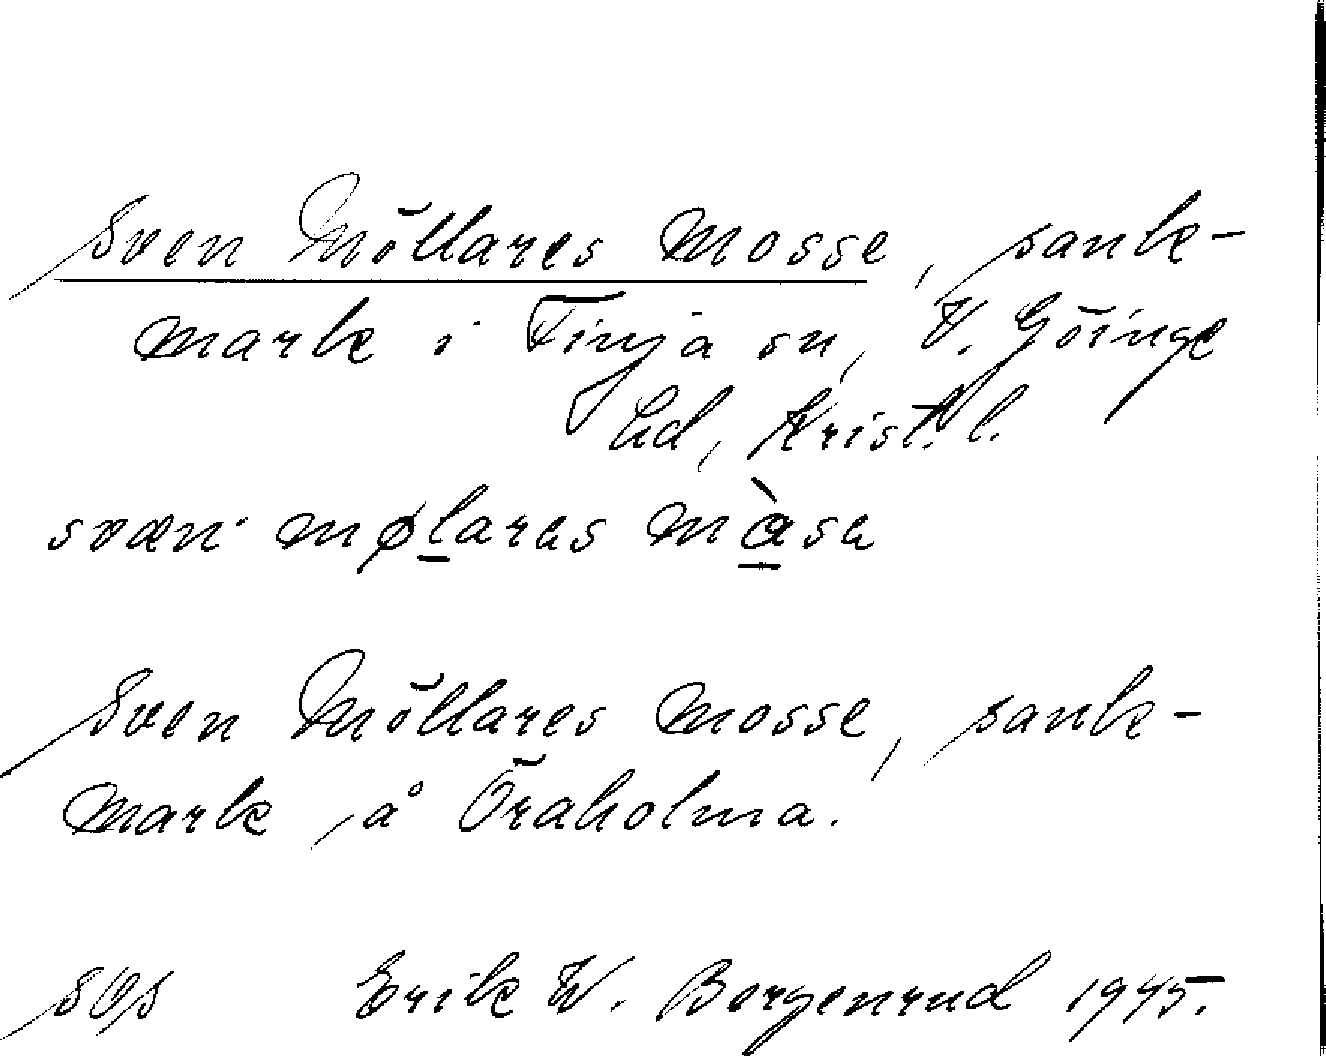 Sven Möllares Mosse, sank-
mark i Finja sn, V. Göinge
hd, Krist. l.
svæn mølaras màsa
Sven Möllares Mosse, sank-
mark på Öraholma.
Erik W. Bergenrud 1945.